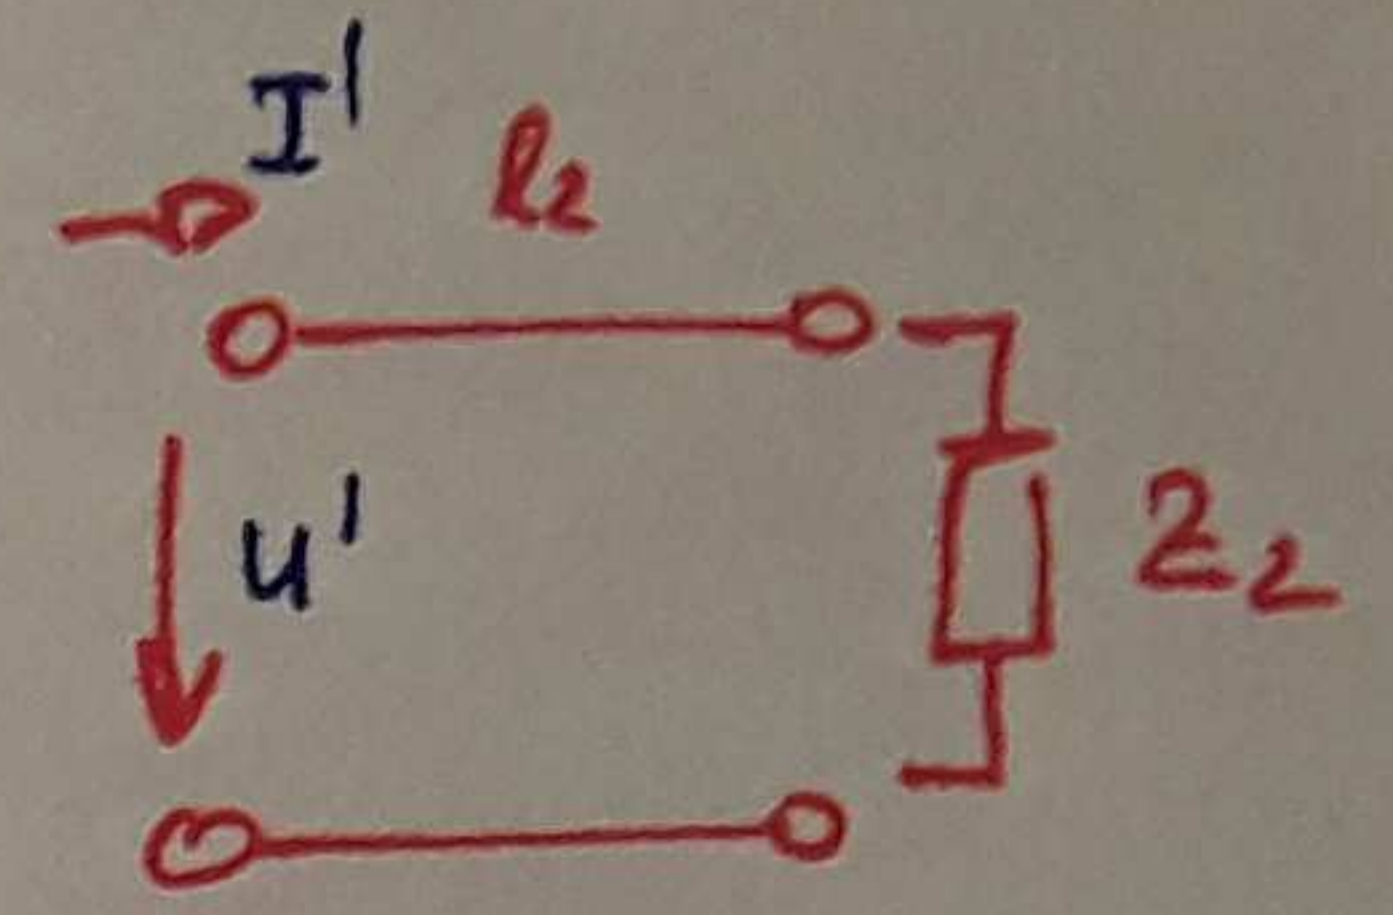 I'
l₂
U'
Z₂